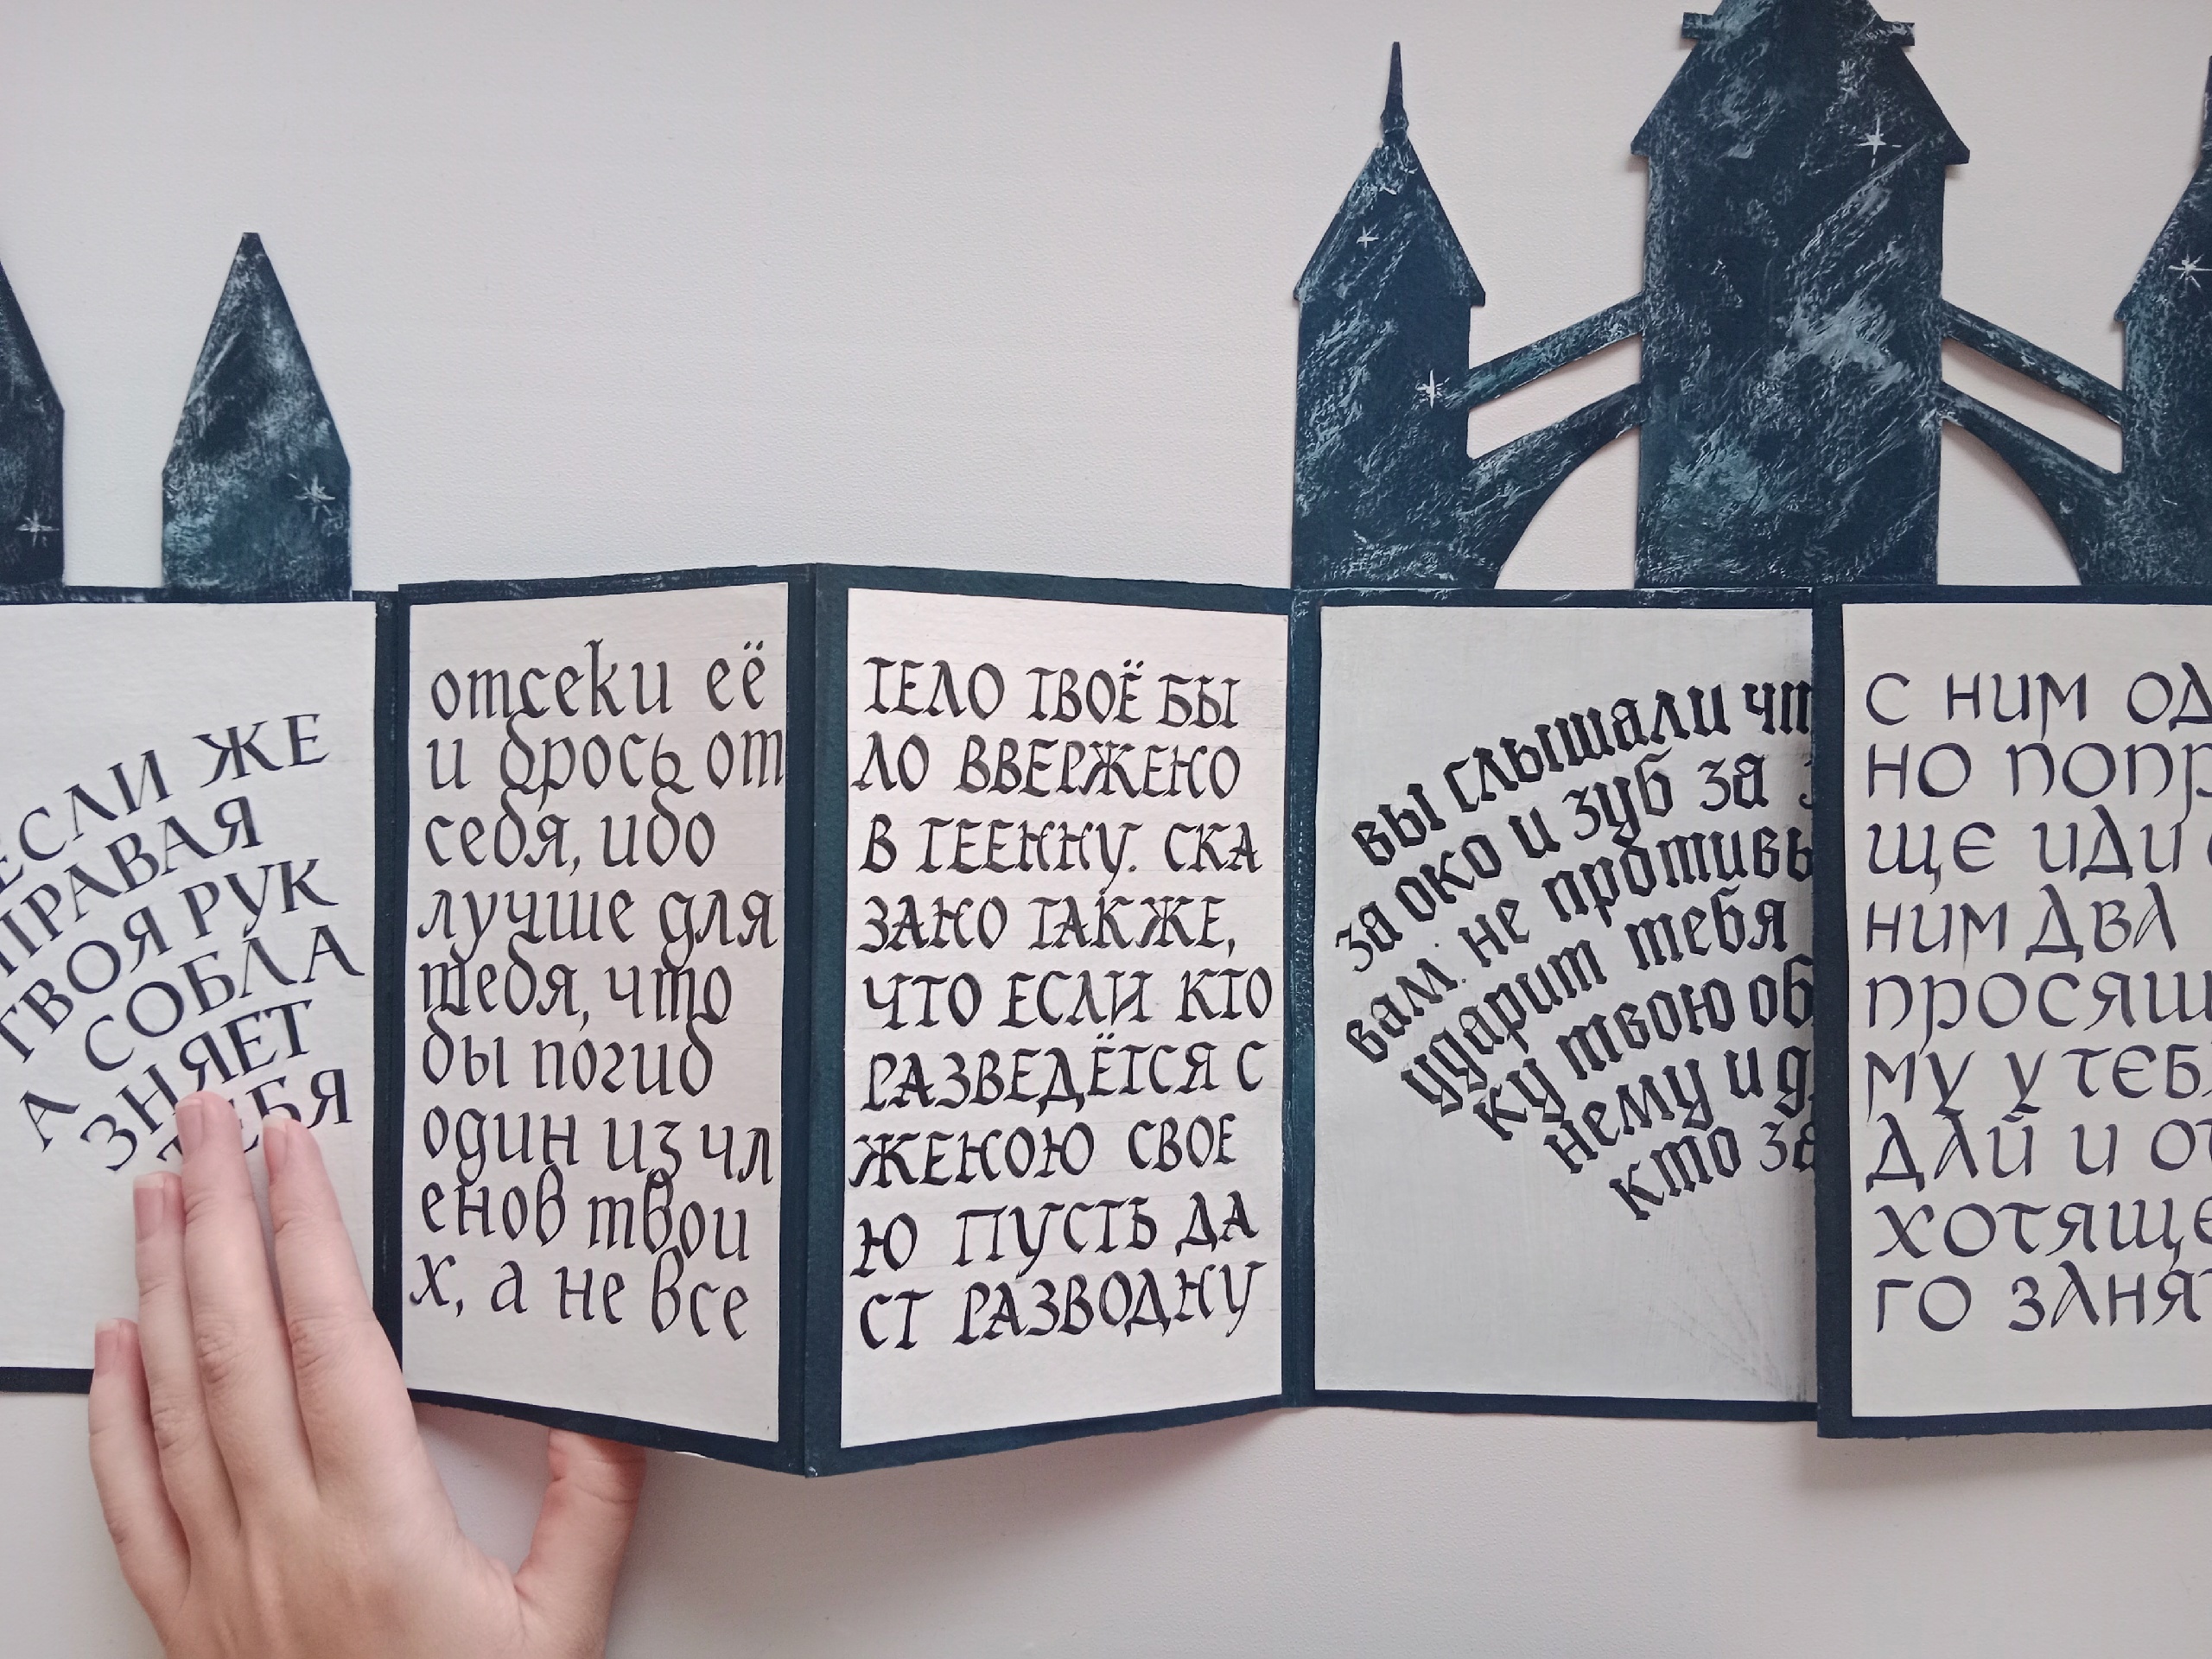 ЕСЛИ ЖЕ
ПРАВАЯ
ТВОЯ РУК
А СОБЛА
ЗНЯЕТ
ТЕБЯ
отсеки её
и брось от
себя, ибо
лучше для
тебя, что
бы погиб
один из чл
енов твои
х, а не все
ТЕЛО ТВОЁ БЫ
ЛО ВВЕРЖЕНО
В ГЕЕННУ. СКА
ЗАНО ТАКЖЕ,
ЧТО ЕСЛИ КТО
РАЗВЕДЁТСЯ С
ЖЕНОЮ СВОЕ
Ю ПУСТЬ ДА
СТ РАЗВОДНУ
вы слышали чт
за око и зуб за
вам: не противь
ударит тебя
ку твою об
нему и д
кто за
с ним од
но попр
ще иди
ним два
просящ
му у теб
дай и от
хотяще
го занят